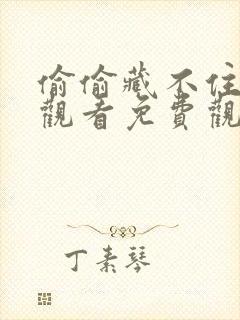 偷偷藏不住
觀看免費觀
丁素琴